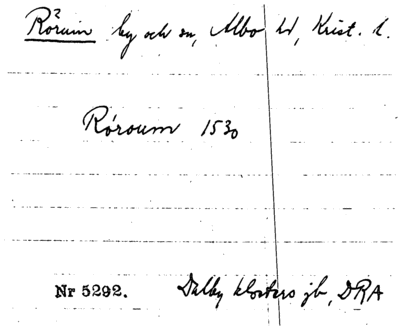 Rörum by och sn, Albo hd, Krist. l.
Róroum 1530
Nr 5292.
Dalby klosters jb, DRA